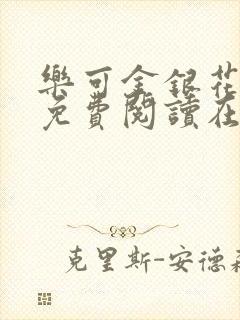 樂可金銀花
免費閱讀在
克里斯-安德森